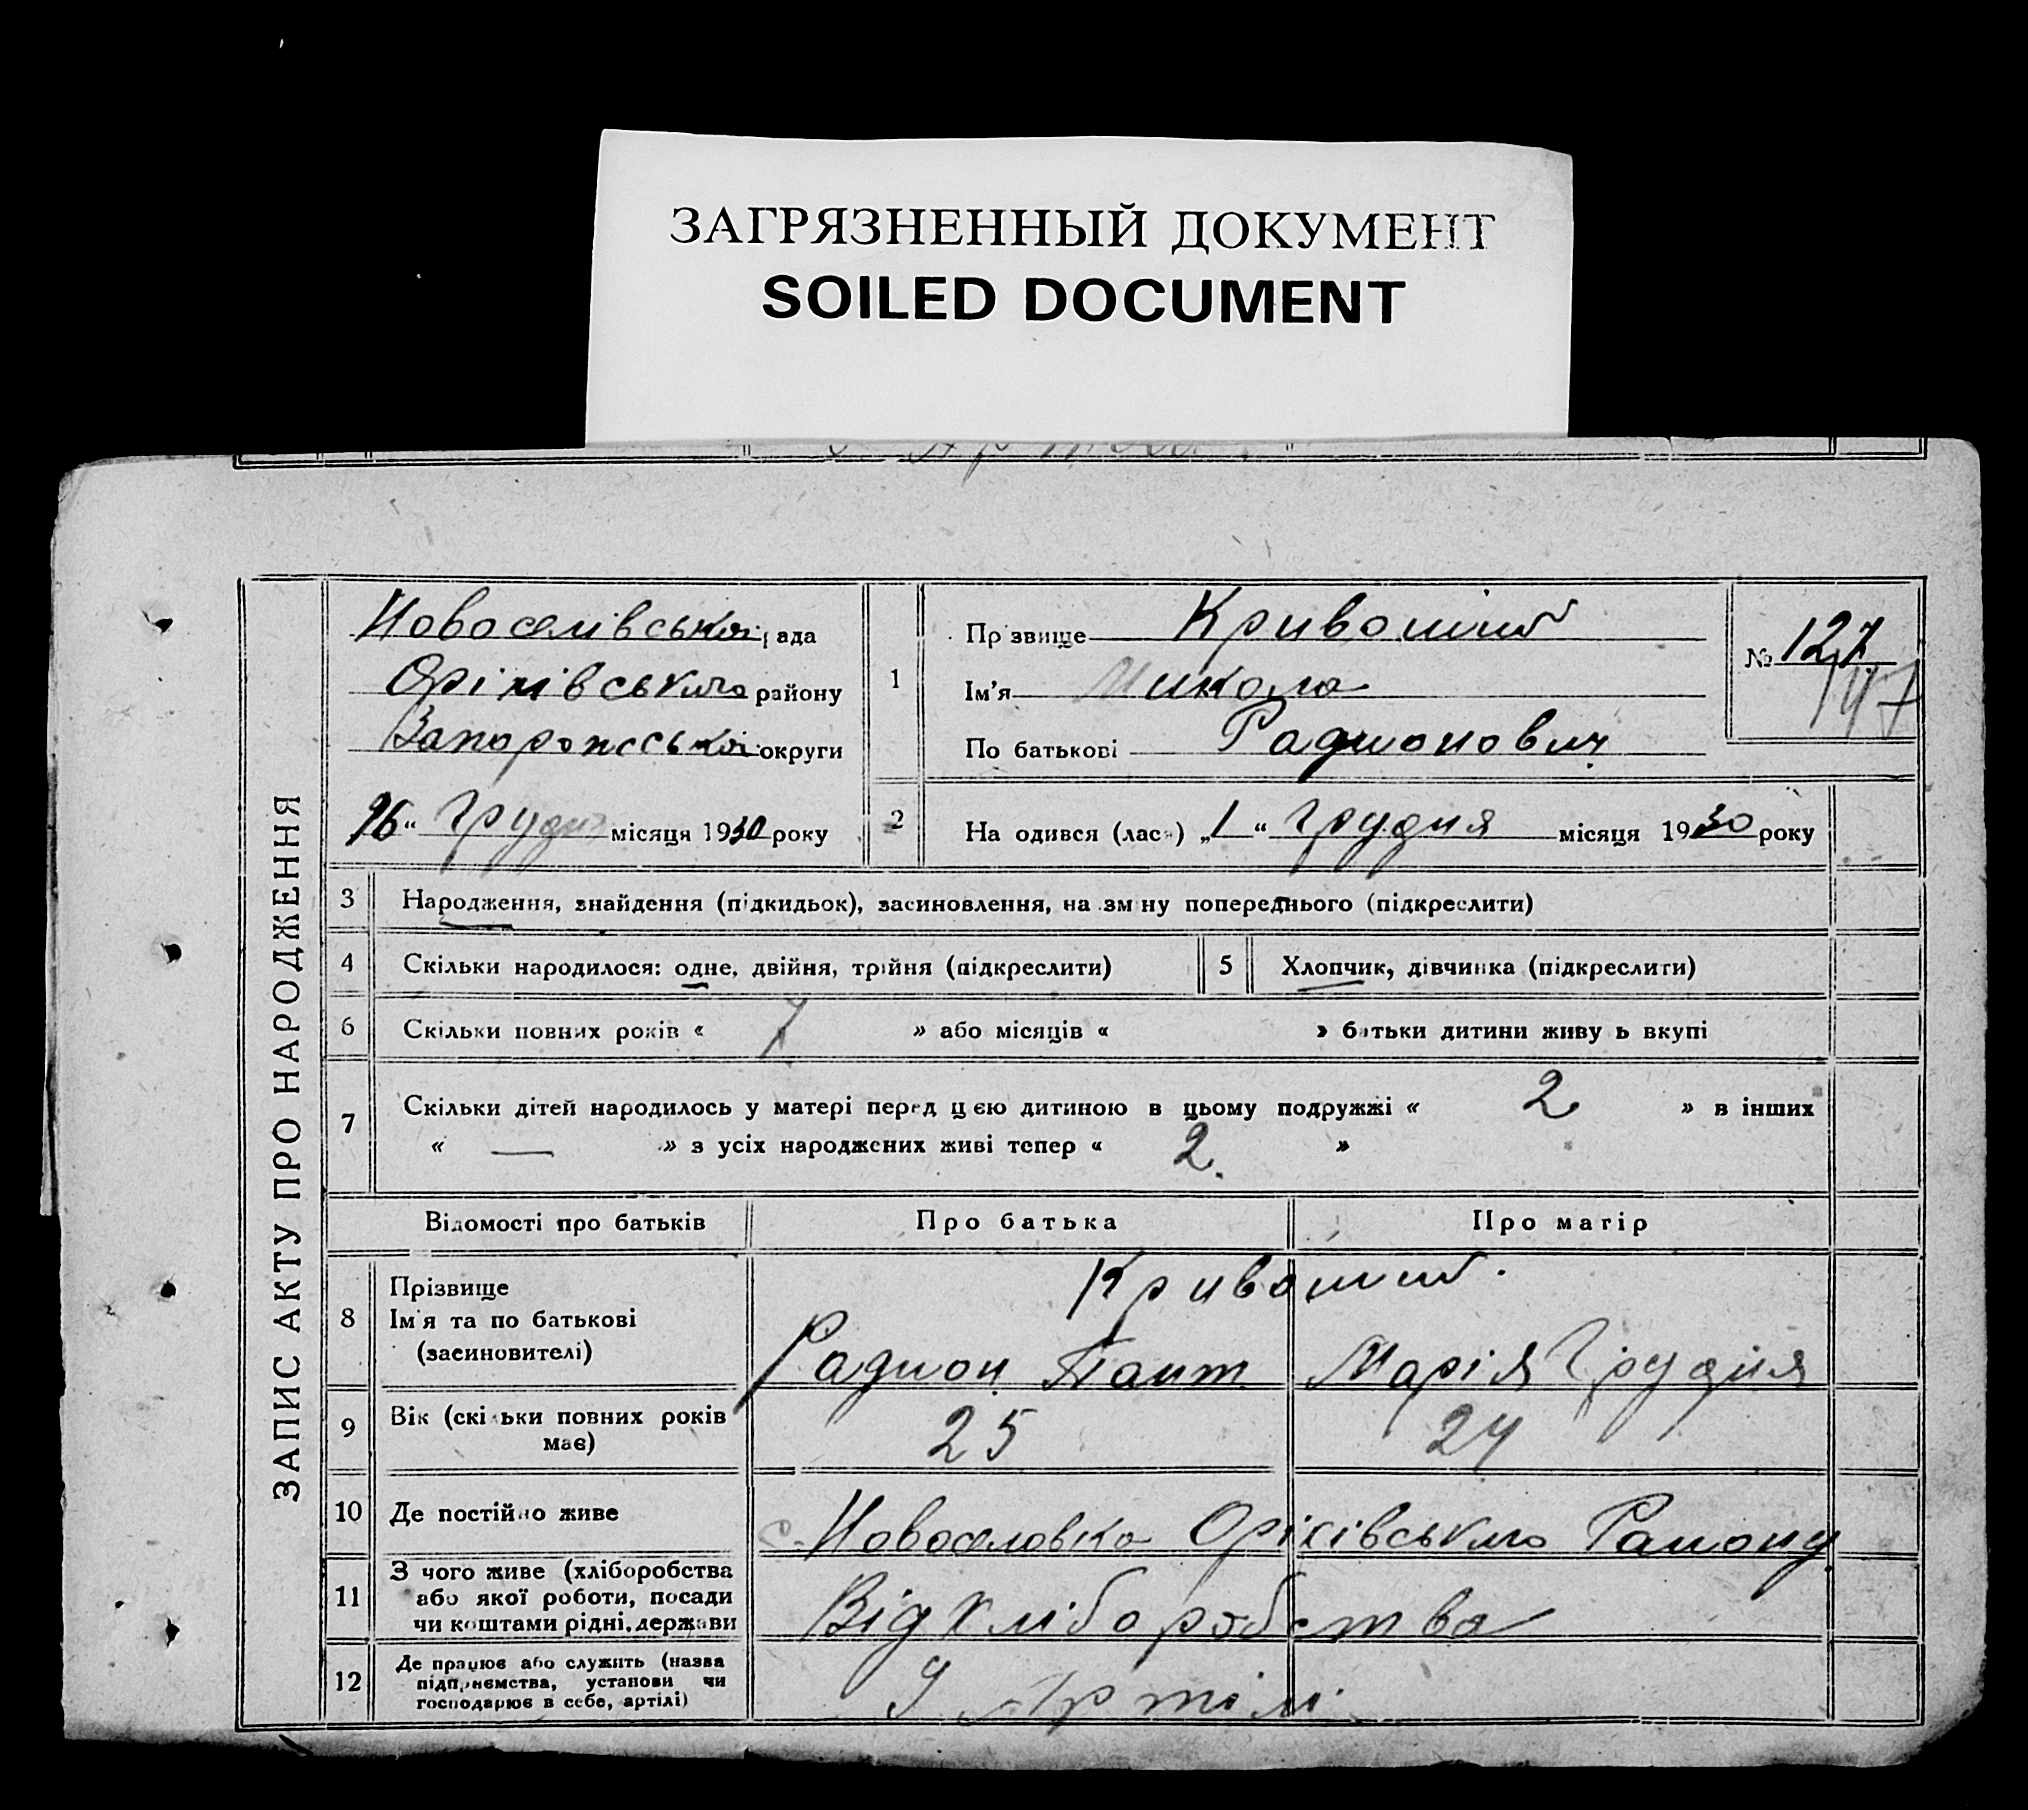 ЗАГРЯЗНЕННЫЙ ДОКУМЕНТ
SOILED DOCUMENT
ЗАПИС АКТУ ПРО НАРОДЖЕННЯ
Новоселівської рада
Оріхівського району
Запорожської округи
16 “ Грудня місяця 1930 року
1
Прізвище Кривошия
Ім'я Микола
По батькові Радионович
№ 127
2 На одився (лась) „1 “ Грудня місяця 1930 року
3 Народження, знайдення (підкидьок), засиновлення, на зміну попереднього (підкреслити)
4 Скільки народилося: одне, двійня, трійня (підкреслити)
5 Хлопчик, дівчинка (підкреслити)
6 Скільки повних років « 7 » або місяців « » батьки дитини живу ь вкупі
7 Скільки дітей народилось у матері перед цією дитиною в цьому подружжі « 2 » в інших
« — » з усіх народжених живі тепер « 2. »
Відомості про батьків Про батька Про матір
8 Прізвище
Ім'я та по батькові
(засиновителі)
Кривошия.
Радион Пант Марія
9 Вік (скільки повних років
має)
25 24
10 Де постійно живе
с. Новоселовка Оріхівського Району
11 З чого живе (хліборобства
або якої роботи, посади
чи коштами рідні, держави
Від Хліборобства
12 Де працює або служить (назва
підприємства, установи чи
господарює в себе, артілі)
У Артілі